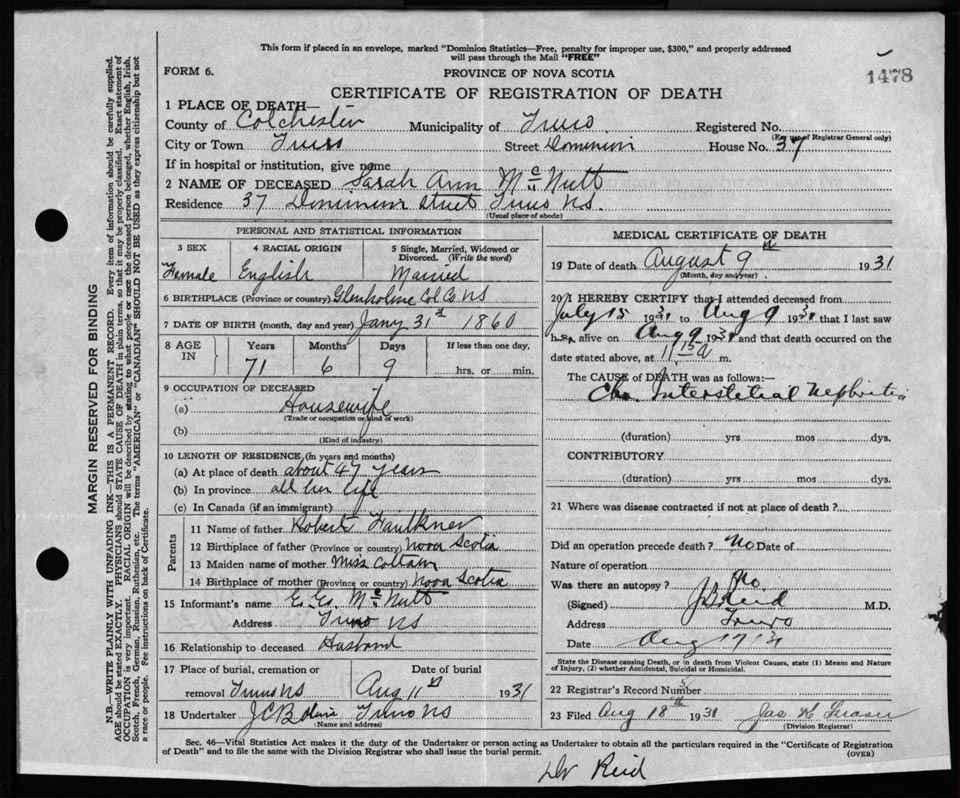 This form if placed in an envelope, marked "Dominion Statistics—Free, penalty for improper use, $300," and properly addressed
will pass through the Mail "FREE"
FORM 6.
PROVINCE OF NOVA SCOTIA
1478
CERTIFICATE OF REGISTRATION OF DEATH
1 PLACE OF DEATH—
County of Colchester Municipality of Truro Registered No.
(For use of Registrar General only)
City or Town Truro Street Dominion House No. 37
If in hospital or institution, give name
2 NAME OF DECEASED Sarah Ann McNutt
Residence 37 Dominion Street Truro NS.
(Usual place of abode)
PERSONAL AND STATISTICAL INFORMATION
3 SEX 4 RACIAL ORIGIN 5 Single, Married, Widowed or Divorced. (Write the word)
Female English Married
6 BIRTHPLACE (Province or country) Glenholme Col Co NS
7 DATE OF BIRTH (month, day and year) Jany 31st 1860
8 AGE IN Years Months Days If less than one day.
71 6 9 hrs. or min.
9 OCCUPATION OF DECEASED
(a) Housewife
(Trade or occupation or kind of work)
(b)
(Kind of industry)
10 LENGTH OF RESIDENCE (in years and months)
(a) At place of death about 47 years
(b) In province all her life
(c) In Canada (if an immigrant)
Parents
11 Name of father Robert Faulkner
12 Birthplace of father (Province or country) Nova Scotia
13 Maiden name of mother Miss
14 Birthplace of mother (Province or country) Nova Scotia
15 Informant's name McNutt
Address Truro NS
16 Relationship to deceased Husband
17 Place of burial, cremation or Date of burial
removal Truro NS Aug 11th 1931
18 Undertaker Truro NS
(Name and address)
MEDICAL CERTIFICATE OF DEATH
19 Date of death August 9th 1931
(Month, day and year)
20 I HEREBY CERTIFY that I attended deceased from
July 15 1931 to Aug 9 1931 that I last saw
her alive on Aug 9 1931 and that death occurred on the
date stated above, at 11 15 a m.
The CAUSE of DEATH was as follows:—
Chr. Interstitial Nephritis
(duration) yrs mos dys.
CONTRIBUTORY
(duration) yrs mos dys.
21 Where was disease contracted if not at place of death?
Did an operation precede death? No Date of
Nature of operation
Was there an autopsy? No
(Signed) Reid M.D.
Address Truro
Date Aug 17 31
State the Disease causing Death, or in death from Violent Causes, state (1) Means and Nature
of Injury, (2) whether Accidental, Suicidal or Homicidal.
22 Registrar's Record Number
23 Filed Aug 18th 1931 Jas H Fraser
(Division Registrar)
Sec. 46—Vital Statistics Act makes it the duty of the Undertaker or person acting as Undertaker to obtain all the particulars required in the "Certificate of Registration
of Death" and to file the same with the Division Registrar who shall issue the burial permit.
(OVER)
Dr Reid
MARGIN RESERVED FOR BINDING
N.B.—WRITE PLAINLY WITH UNFADING INK—THIS IS A PERMANENT RECORD. Every item of information should be carefully supplied.
AGE should be stated EXACTLY. PHYSICIANS should STATE CAUSE OF DEATH in plain terms, so that it may be properly classified. Exact statement of
OCCUPATION is very important. RACIAL ORIGIN will be described by stating to what people or race the deceased person belonged, whether English, Irish,
Scotch, French, German, Russian, Ruthenian, etc. The terms "AMERICAN" or "CANADIAN" SHOULD NOT BE USED as they express citizenship but not
a race or people. Fee instructions on back of Certificate.